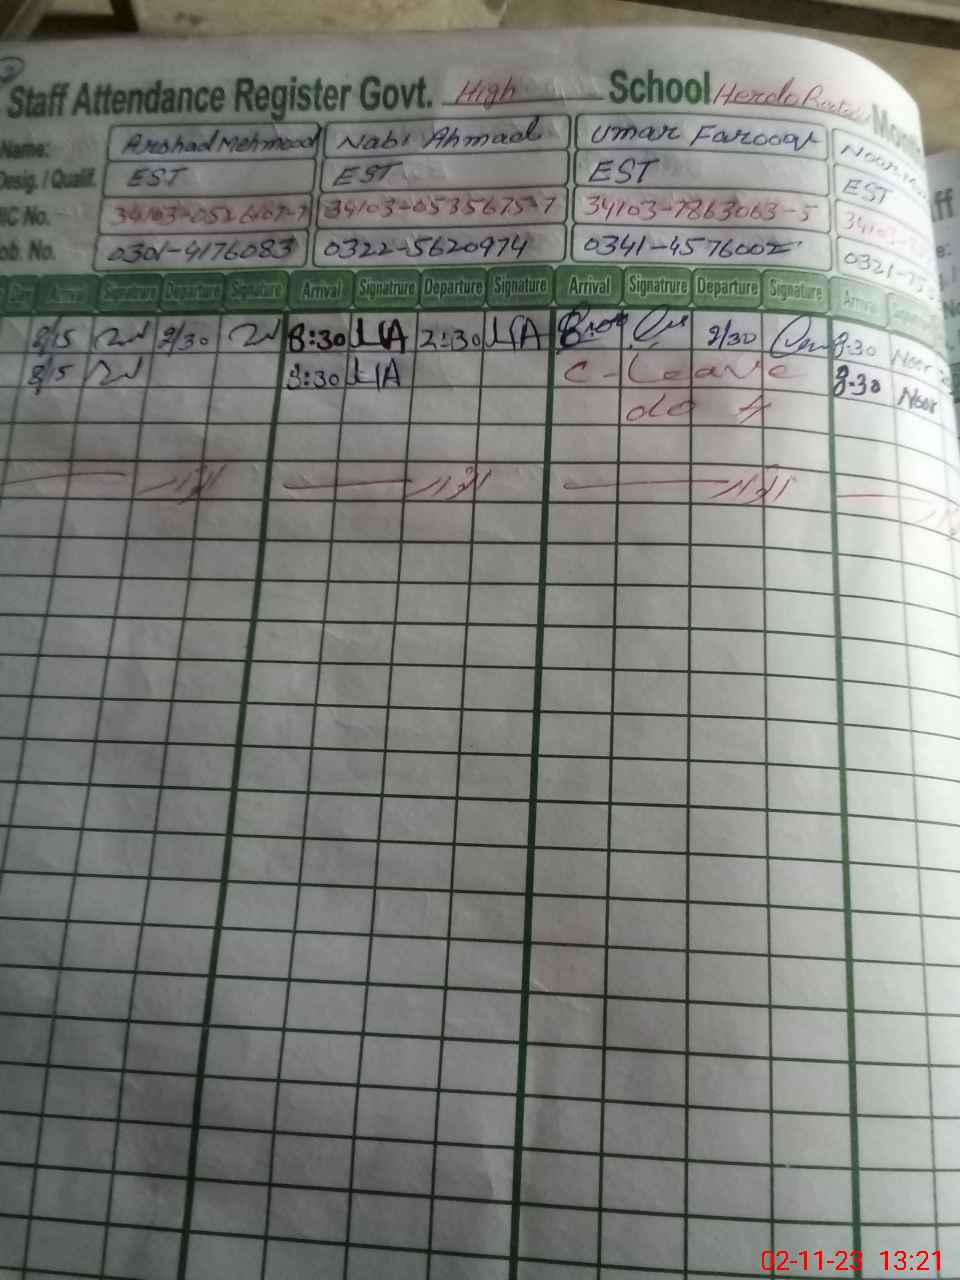 Staff Attendance Register Govt. High School Herdo
Name: Arshad Mehmood Nabi Ahmad Umar Farooq
Desig. / Qualif. EST EST EST EST
IC No. 34103-0535675-7 34103-7863063-5 34103-
ob. No. 0301-4176083 0322-5620974 0341-4576002 0321-
Day Arrival Signatrure Departure Signature Arrival Signatrure Departure Signature Arrival Signatrure Departure Signature Arrival
8/15 2/30 8:30 NA 2:30 NA 2/30 8:30 Noor
8/15 8:30 NA C-Leave 8:30 Noor
do 4
اتوار اتوار اتوار
02-11-23 13:21